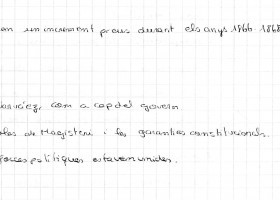 un increment preus durant els anys 1866-1868
com a cap del govern
de Magisteri i les garanties constitucionals.
forces polítiques estaven unides.